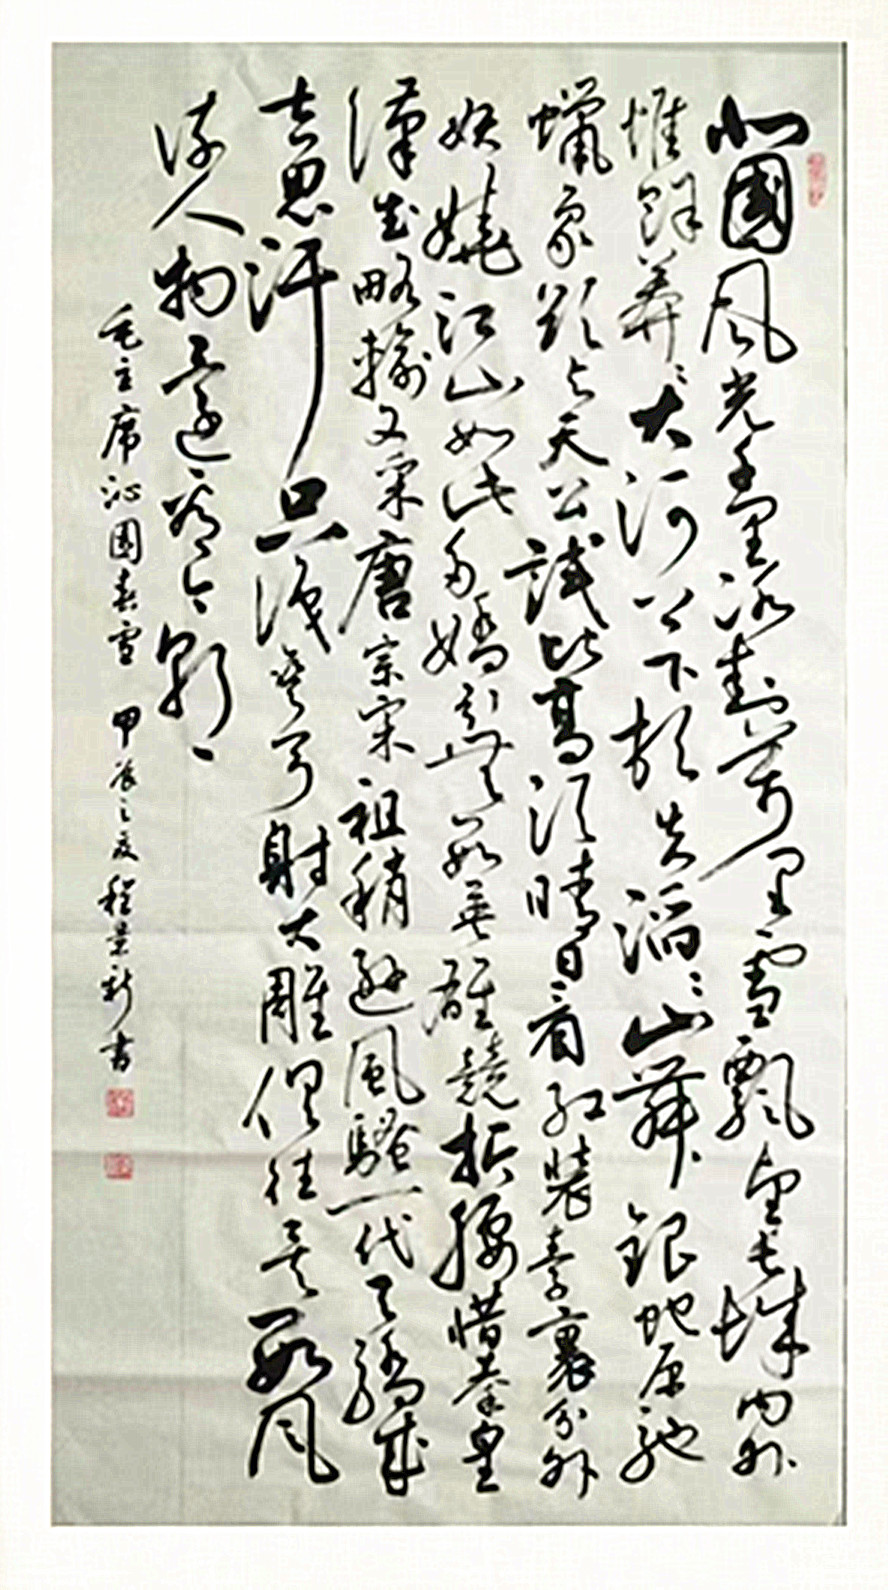 北國风光千里冰封万里雪飘望长城内外
惟餘莽莽大河上下顿失滔滔山舞银蛇原驰
蠟象欲与天公試比高须晴日看红装素裹分外
妖娆江山如此多嬌引無数英雄競折腰惜秦皇
漢武略输文采唐宗宋祖稍逊風騷一代天骄成
吉思汗只识弯弓射大雕俱往矣数风
流人物还看今朝
毛主席沁園春雪 甲辰之夏 程景新書